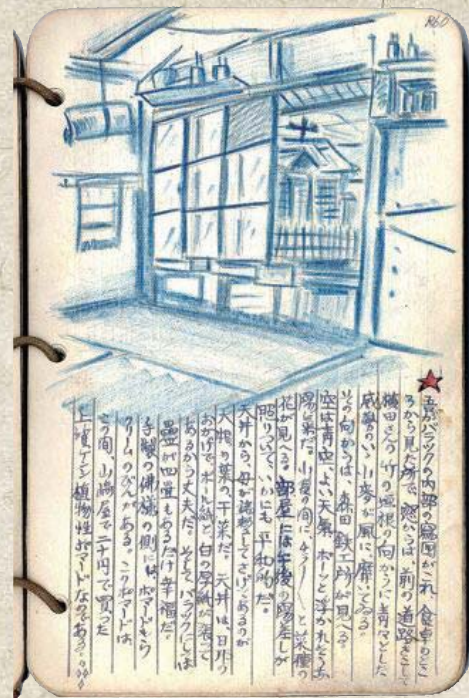 860
五号バラックの内部の寫圖がこれ 食卓のところ
から見た所で、窓からは 前の道路をこして
横田さんの竹の垣根の向かうに青々とした
威勢のいい小麦が風に靡いてゐる。
その向かうは、森田鉄工所が見へる。
空は青空、よい天氣 ボーッと浮かれさうな
陽氣だ。小麦の間に、チラ〱と菜種の
花が見へる。部屋には午後の陽差しが
照りついて、いかにも平和的だ。
天井から、母が諸艶してさげてあるのが
大根の葉の干菜だ。天井は、日頃の
おかげで、ボール紙と白の厚紙が張って
あるから丈夫だ。そしてバラックにしは
畳が四畳もあるだけ幸福だ。
手製の佛壇の側には、ポマードやら
クリームのびんがある。このポマードは
この間、山崎屋で二十円で買った
上濱ケンシ植物性ポマードなのである。